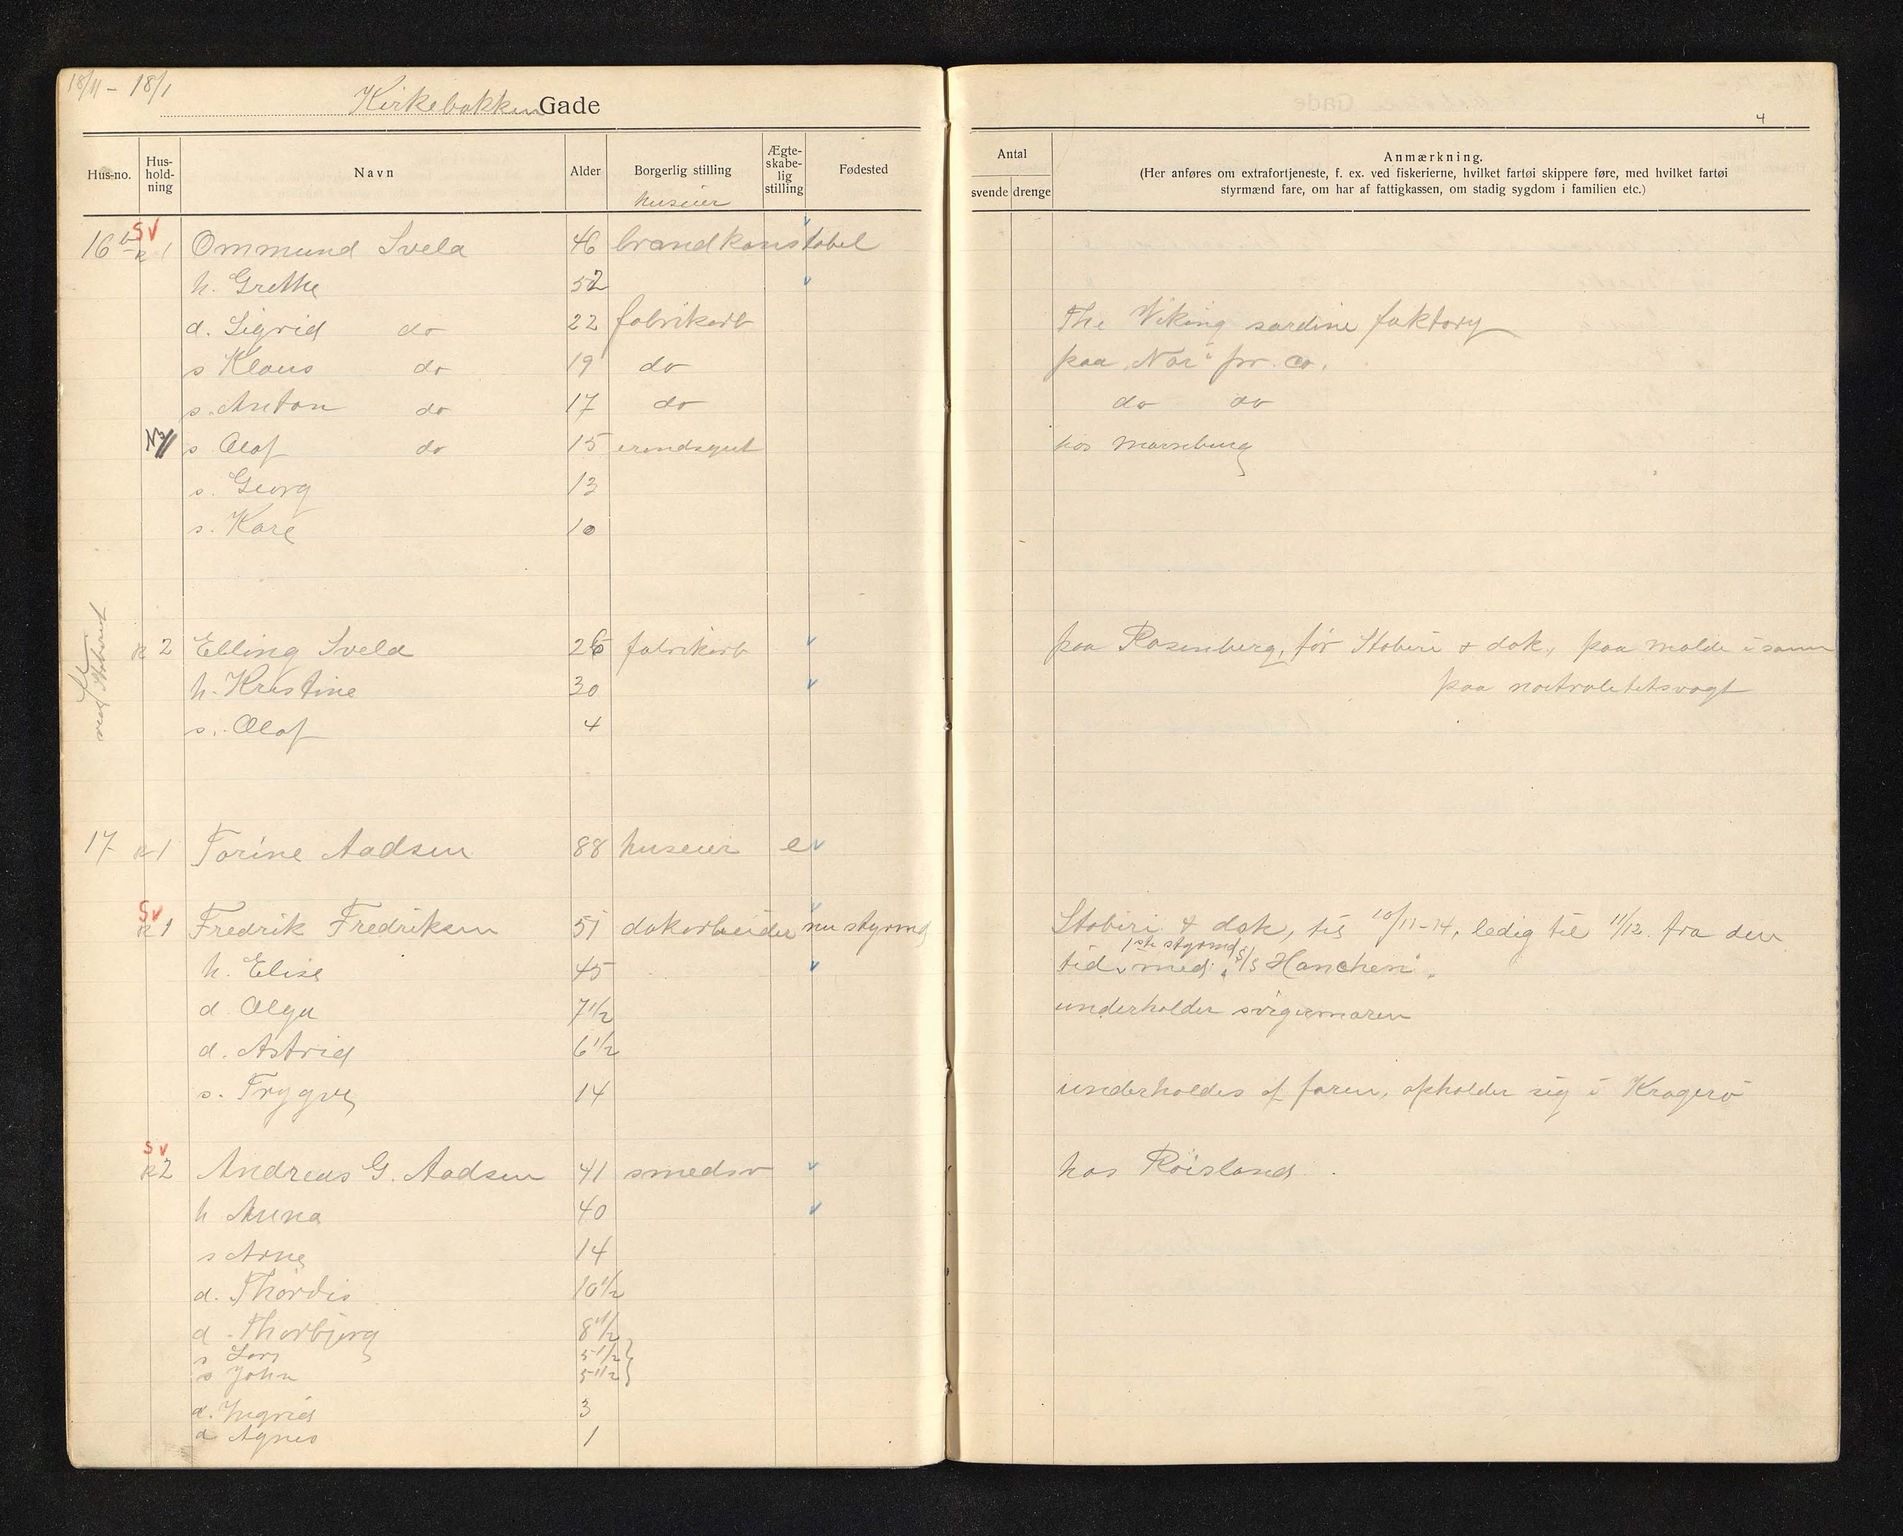 18/11 - 18/1
Kirkebakken Gade
4
Hus-no. Hus-hold-ning Navn Alder Borgerlig stilling Ægte-skabe-lig stilling Fødested
Antal
svende drenge
Anmærkning.
(Her anføres om extrafortjeneste, f. ex. ved fiskerierne, hvilket fartøi skippere føre, med hvilket fartøi
styrmænd fare, om har af fattigkassen, om stadig sygdom i familien etc.)
huseier
SV
16 b R 1 Ommund Svela 46 brandkonstabel
h. Grethe 52
d. Sigrid do 22 fabrikarb The Viking sardine faktory
s Klaus do 19 do paa "Nor" pr. co.
s. Anton do 17 do do do
s Olaf do 15 erendsgut hos
s. Georg 13
s. Kare 10
R 2 Elling Svela 26 fabrikarb paa Rosenberg, før Støberi & dok, paa Molde i som
h. Kristine 30 paa nøitralitetsvagt
s. Olaf 4
17 R 1 Torine Aadsen 88 huseier e
SV
R 1 Fredrik Fredriksen 51 dokarbeider nu styrmd Støberi & dok, til 10/11-14, ledig til 11/12. fra den
1ste styrmd
h. Elise 45 tid, med "S/S Hanchen".
d. Olga 7 1/2 underholder svigermoren
d. Astrid 6 1/2
s. Trygve 14 underholdes af faren, opholder sig i Kragerø
SV
R 2 Andreas G. Aadsen 41 smedsv hos Røisland.
h Anna 40
s Arne 14
d. Thordis 10 1/2
d. Thorbjørg 8 1/2
s Lars 5 1/2
s John 5 1/2
d. Ingrid 3
d Agnes 1